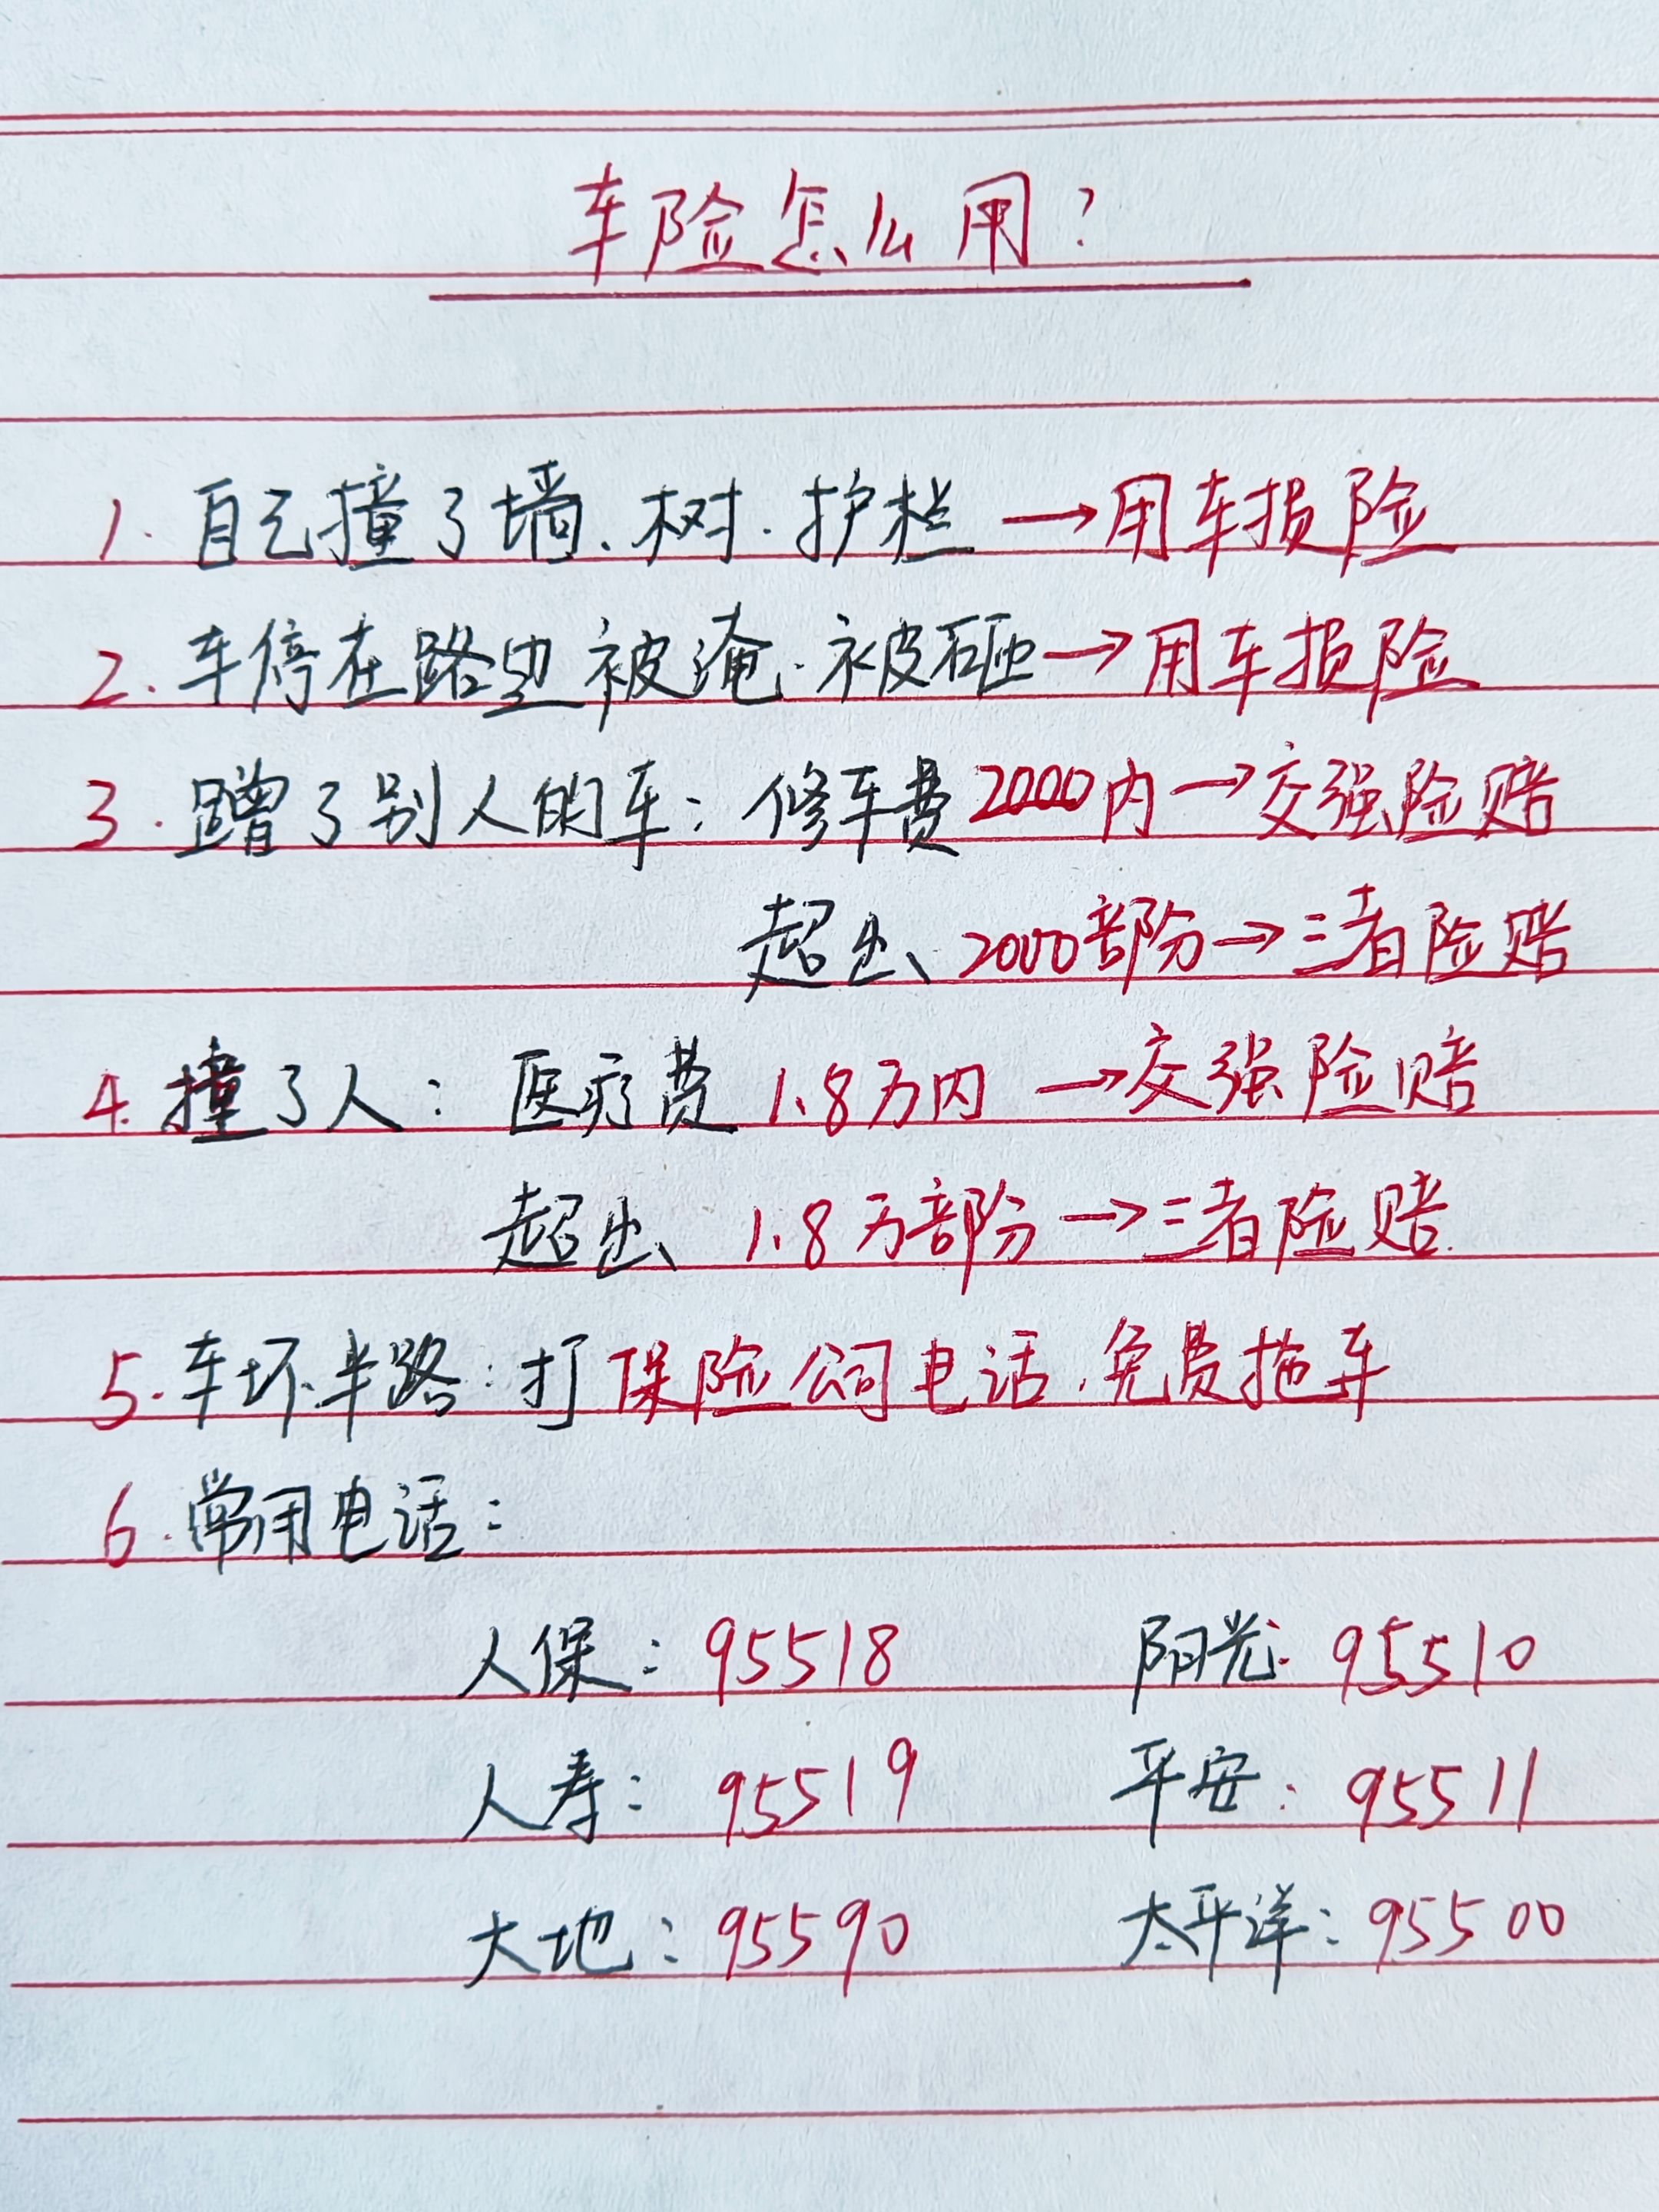 车险怎么用？
1. 自己撞了墙、树、护栏→用车损险
2. 车停在路边被淹、被砸→用车损险
3. 蹭了别人的车：修车费2000内→交强险赔
超出2000部份→三者险赔
4. 撞了人：医疗费1.8万内→交强险赔
超出1.8万部份→三者险赔.
5. 车坏半路：打保险公司电话、免费拖车
6. 常用电话：
人保：95518 阳光：95510
人寿：95519 平安：95511
大地：95590 太平洋：95500